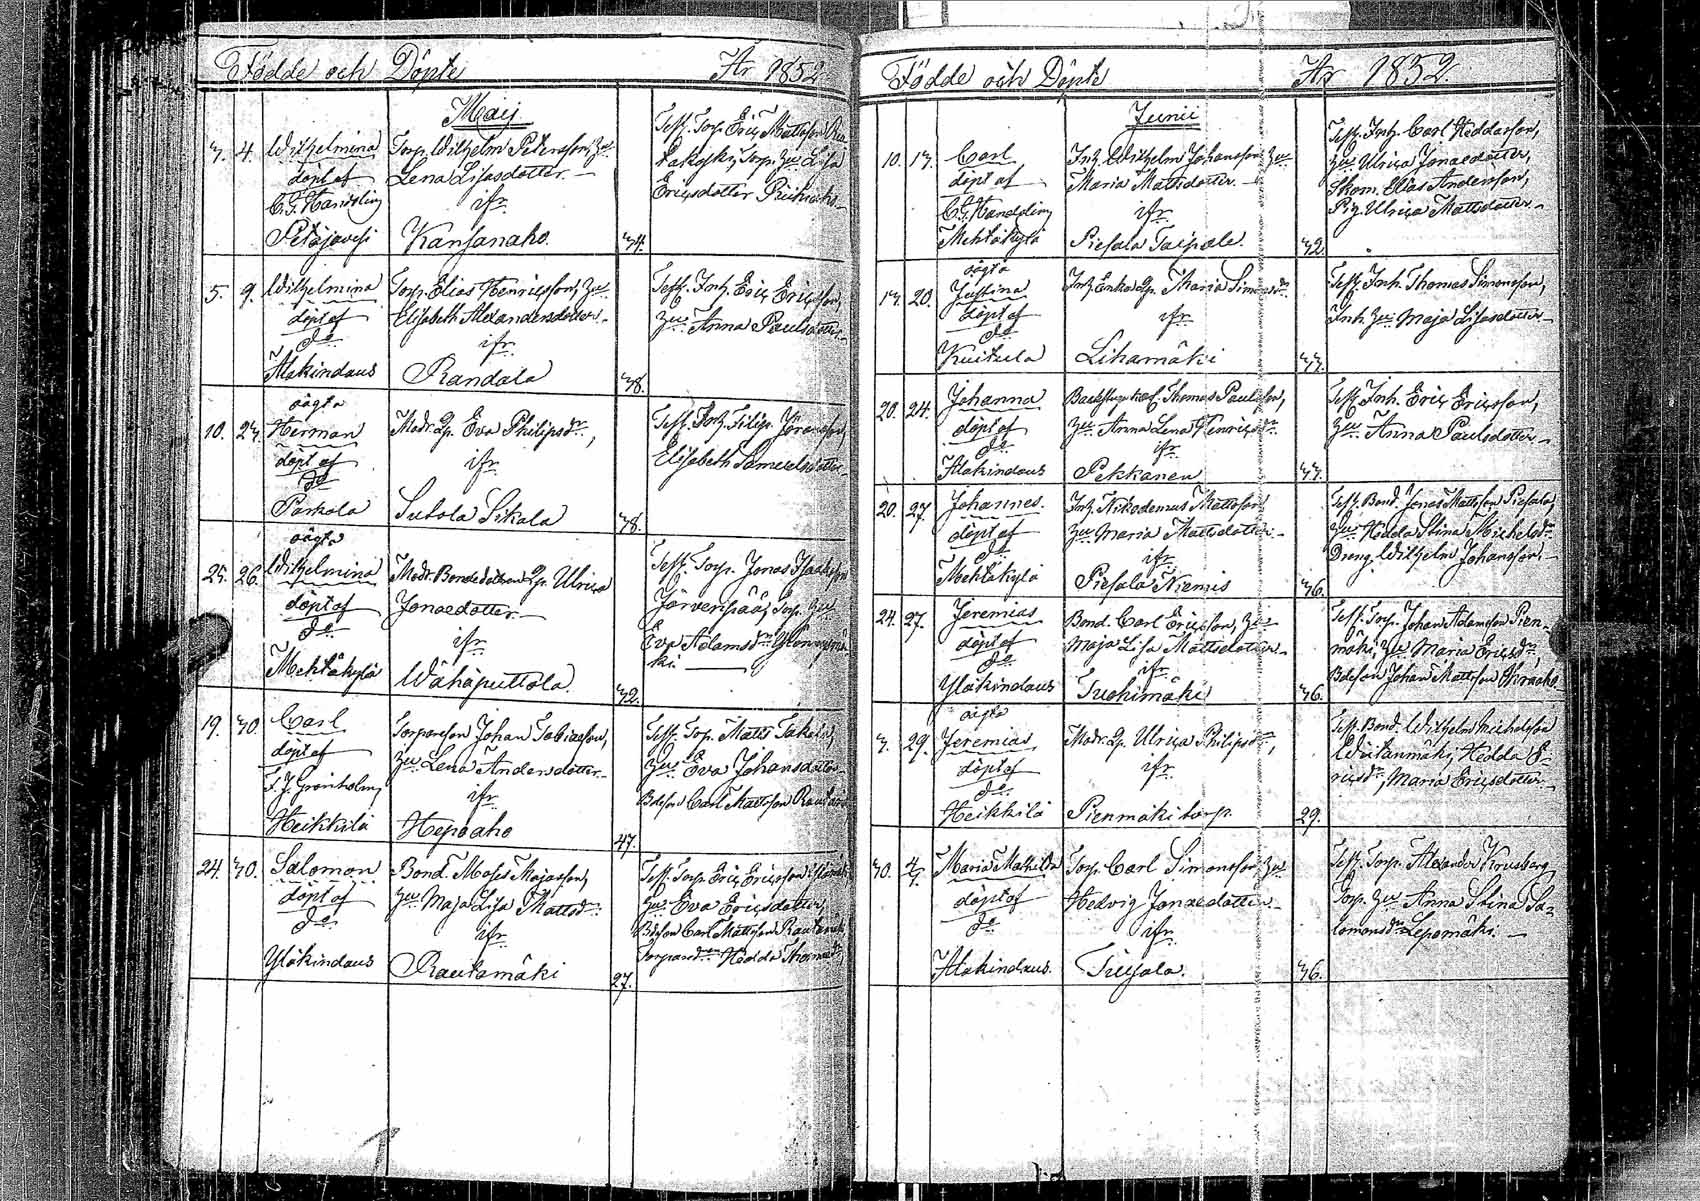 Födde och Döpte År 1852
Maij
3. 4. Wilhelmina
döpt af
C. G. Handling
Petäjävesi
Torp. Wilhelm Petersson, Hu
Lena Lisasdotter.
ifr.
Kansanaho.
34.
Test. Torp. Eric Mattsson
Torp. Hu Lisa
Ericsdotter Piikiaho
5. 9. Wilhelmina
döpt af
do
Alakindaus
Torp. Elias Henricsson, Hu
Elisabeth Alexandersdotter
ifr.
Randala
38.
Test. Inh. Eric Ericsson,
Hu Anna Paulsdotter
oägta
10. 23. Herman
döpt af
do
Parkola
Modr. Qp. Eva Philipsdr,
ifr.
Sutola Sikala
38.
Test. Inh. Filip Göransson,
Elisabeth Samuelsdotter
oägta
25. 26. Wilhelmina
döpt af
do
Mehtäkylä
Modr. Bondedottren Qp. Ulrica
Jonaedotter
ifr.
Wähäputtola.
32.
Test. Torp. Jonas Isaaksson
Järvenpää, Torp. Hu
Eva Adamsdr
ki
19. 30. Carl
döpt af
F. J. Grönholm,
Heikkilä
Torparson Johan Tobiasson,
Hu Lena Andersdotter
ifr.
Hepoaho
47.
Test. Torp. Matts Takala,
Hu Eva Johansdotter
Bdeson Carl Mattsson
24. 30. Salomon
döpt af
do
Yläkindaus
Bond. Moses Majasson,
Hu Maja Lisa Mattsdr
ifr.
Rautamäki
27.
Test. Torp. Eric Ericsson
Hu Eva Ericsdotter,
Bdeson Carl Mattsson Rautamäki
Hedda Thomasdr
Födde och Döpte År 1852.
Junii
10. 13. Carl
döpt af
C. G. Handling
Mehtäkylä
Inh. Wilhelm Johansson, Hu
Maria Mattsdotter
ifr.
Piesala Taipale.
32.
Test. Inh. Carl Heddasson,
Hu Ulrica Jonaedotter,
Skom. Elias Andersson,
Pig. Ulrica Mattsdotter
oägta
13. 20. Justina
döpt af
do
Kuitula
Inh. Enka Qp. Maria Simonsdr
ifr.
Lihamäki
33.
Test. Inh. Thomas Simonsson,
Inh. Hu Maja Lisasdotter
20. 24. Johanna
döpt af
do
Alakindaus
Backstuguk. Thomas Paulsson,
Hu Anna Lena Henricsdr
ifr.
Pekkanen
33.
Test. Inh. Eric Ericsson,
Hu Anna Paulsdotter
20. 27. Johannes.
döpt af
do
Mehtäkylä
Inh. Nikodemus Mattsson
Hu Maria Mattsdotter
ifr.
Piesala Niemis
36.
Test. Bond. Jonas Mattsson Piesala,
Hu Hedda Stina Michelsdr
Dreng Wilhelm Johansson
24. 27. Jeremias
döpt af
do
Yläkindaus
Bond. Carl Ericsson, Hu
Maja Lisa Mattsdotter
ifr.
Tuohimäki
36.
Test. Torp. Johan Adamsson Pien-
mäki, Hu Maria Ericsdr
Bdeson Johan Mattsson
oägta
3. 29. Jeremias
döpt af
do
Heikkilä
Modr. Qp. Ulrica Philipsdr,
ifr.
Pienmäki torp.
29.
Test. Bond. Wilhelm Michelsson
Wiitanmäki, Hedda E-
ricsdr, Maria Ericsdotter
30. 4/7. Maria Mathilda
döpt af
do
Alakindaus.
Torp. Carl Simonsson, Hu
Hedvig Jonaedotter
ifr.
Tiusala.
36.
Test. Torp. Alexander Krusberg
Torp. Hu Anna Stina Sa-
lomonsdr Lepomäki.